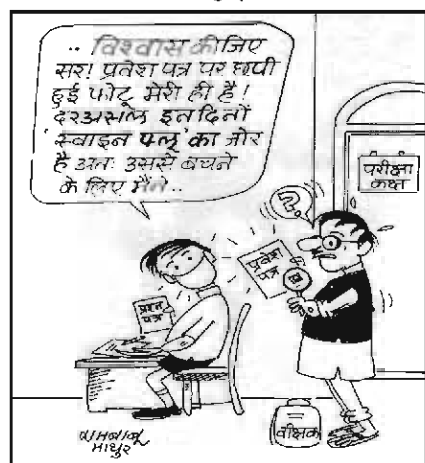 .. विश्वास कीजिए
सर! प्रवेश पत्र पर छपी
हुई फोटू मेरी ही है!
दरअसल इन दिनों
'स्वाइन फ्लू' का जोर
है अतः उससे बचने
के लिए मैंने..
परीक्षा
कक्ष
?.
प्रवेश
पत्र
प्रश्न
पत्र
वीक्षक
माथुर